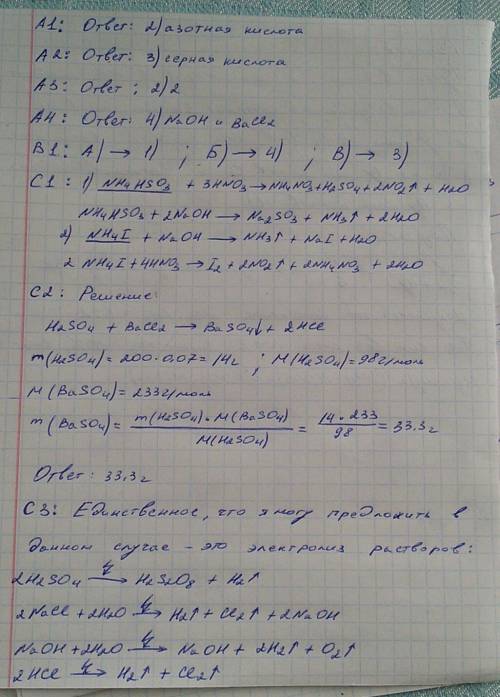 А1: Ответ: 2) азотная кислота
А2: Ответ: 3) серная кислота
А3: Ответ: 2) 2
А4: Ответ: 4) NaOH и BaCl2
В1: А) → 1) ; Б) → 4) ; В) → 3)
С1: 1) NH4HSO3 + 3HNO3 → NH4NO3 + H2SO4 + 2NO2↑ + H2O
NH4HSO3 + 2NaOH → Na2SO3 + NH3↑ + 2H2O
2) NH4I + NaOH → NH3↑ + NaI + H2O
2 NH4I + 4HNO3 → I2 + 2NO2↑ + 2NH4NO3 + 2H2O
С2: Решение:
H2SO4 + BaCl2 → BaSO4↓ + 2HCl
m(H2SO4) = 200·0,07 = 14г ; M(H2SO4) = 98г/моль
M(BaSO4) = 233г/моль
m(BaSO4) = m(H2SO4)·M(BaSO4) / M(H2SO4) = 14·233 / 98 = 33,3г
Ответ: 33,3г
С3: Единственное, что я могу предложить в
данном случае – это электролиз растворов:
2H2SO4 → H2S2O8 + H2↑
2NaCl + 2H2O → H2↑ + Cl2↑ + 2NaOH
NaOH + 2H2O → NaOH + 2H2↑ + O2↑
2HCl → H2↑ + Cl2↑